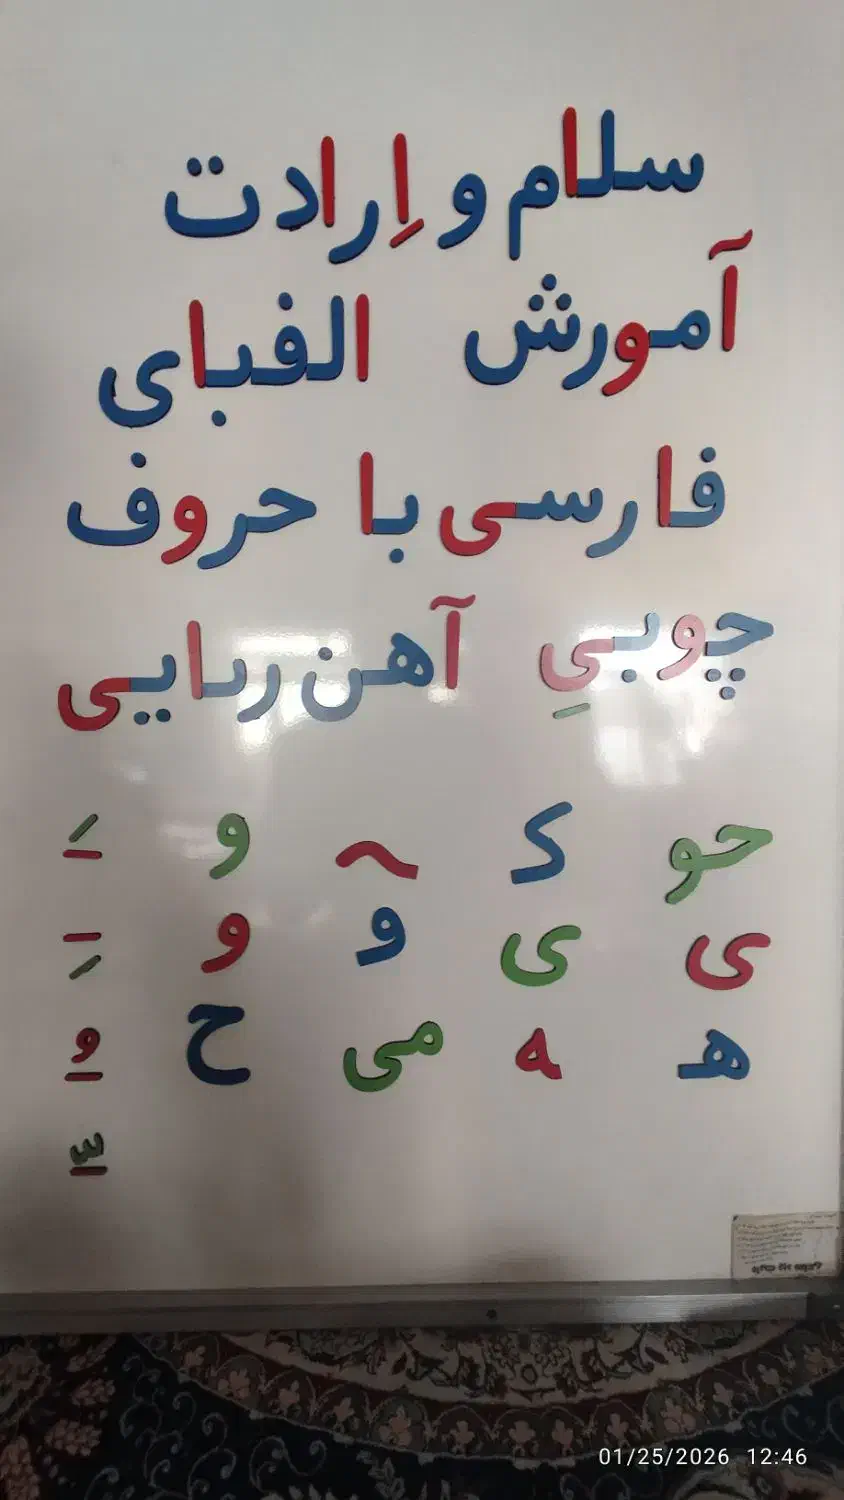 سلام و اِرادت
آمورش الفبای
فارسی با حروف
چوبیِ آهن رىایی
حو کـ ~ و َ ا
ی ی و و ا ِ
هـ ـه می ح ُ ا
ّ ا
01/25/2026 12:46